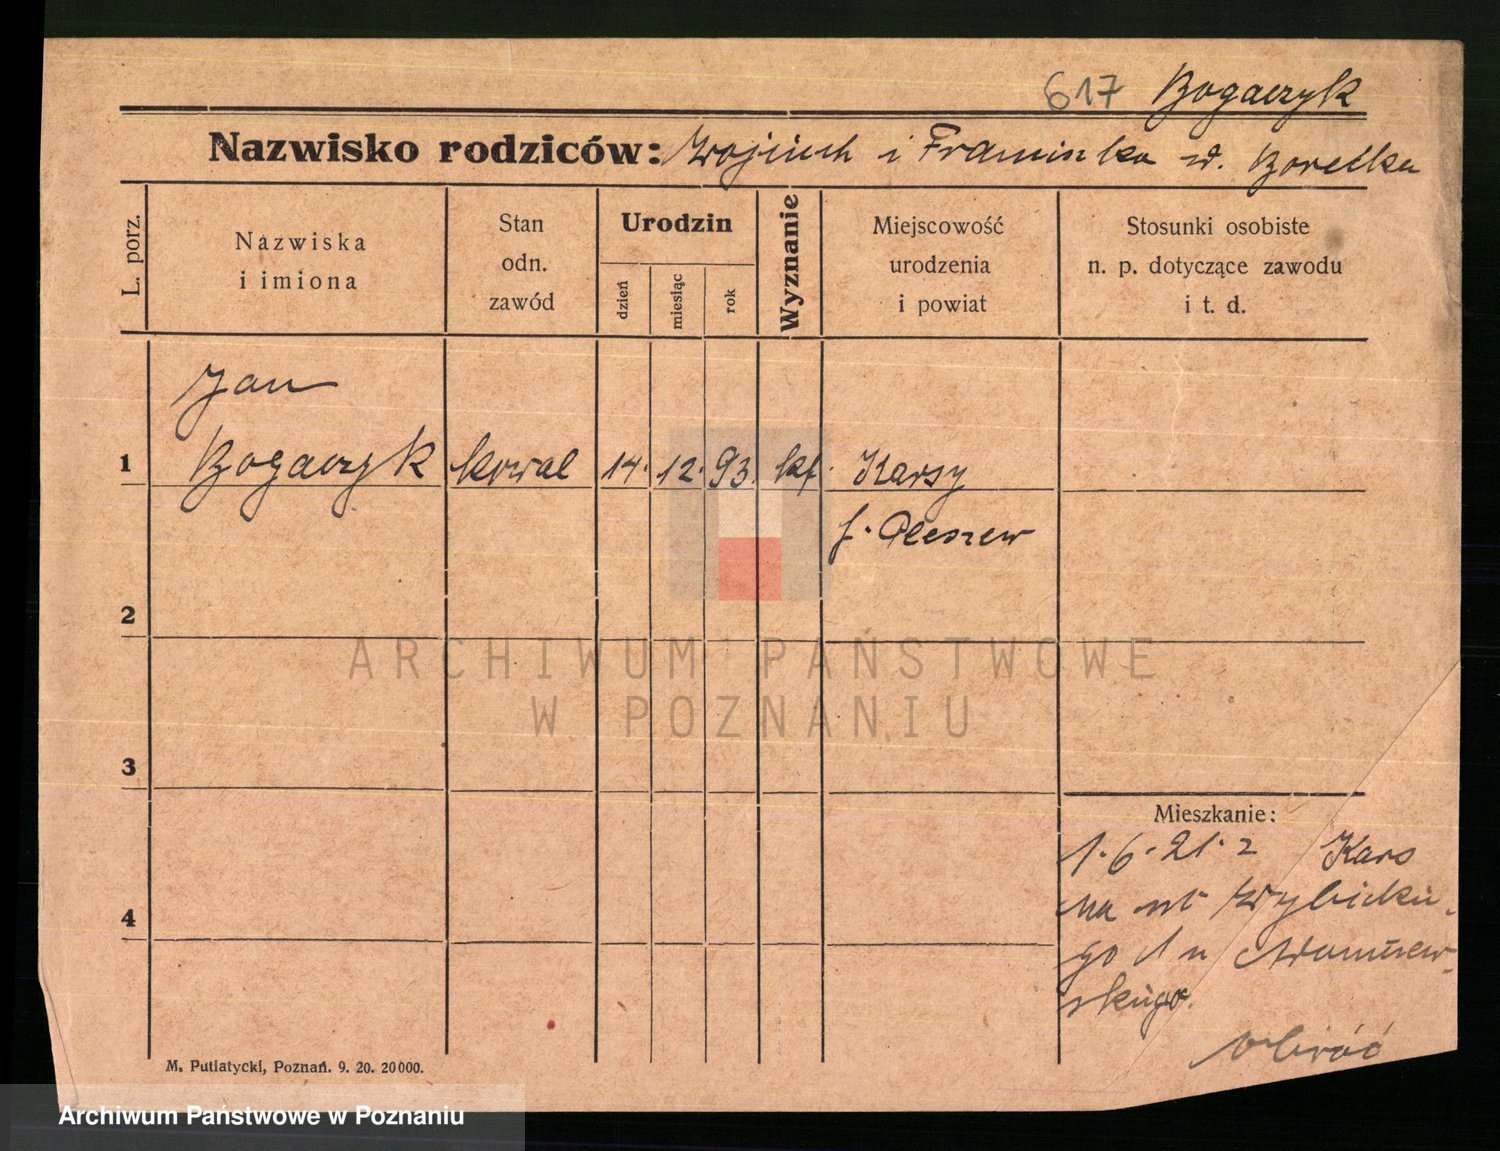 617 Bogaczyk
Nazwisko rodziców: Wojciech i Franciszka d. Borecka
L. porz.
Nazwiska
i imiona
Stan
odn.
zawód
Urodzin
dzień
miesiąc
rok
Wyznanie
Miejscowość
urodzenia
i powiat
Stosunki osobiste
n. p. dotyczące zawodu
i t. d.
Jan
1 Bogaczyk kowal 14. 12. 93. kt. Karsy
Pleszew
2
ARCHIWUM PAŃSTWOWE
W POZNANIU
3
Mieszkanie:
1. 6. 21. z Kars
na ul Wybickie
4
go 1 u
skiego.
obróć
M. Putiatycki, Poznań. 9. 20. 20000.
Archiwum Państwowe w Poznaniu